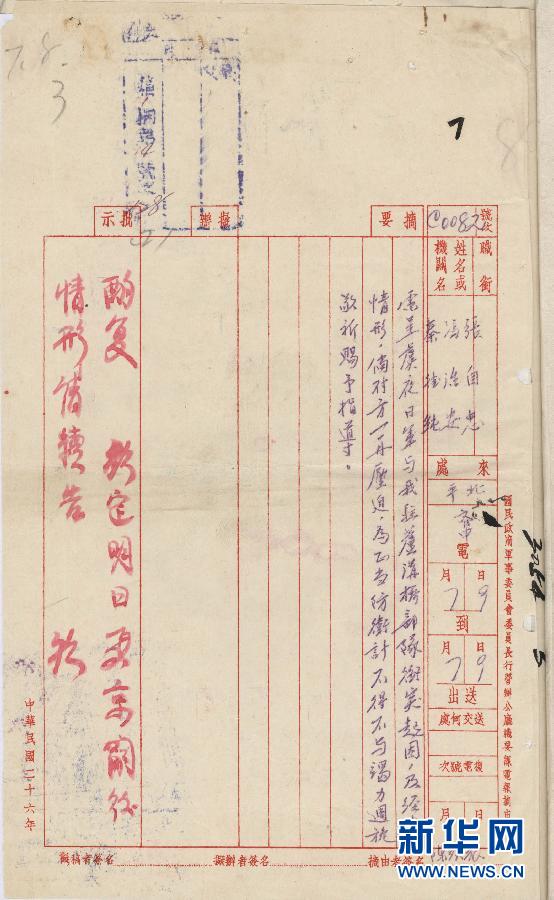 國民政府軍事委員會委員長行營辦公廳機要課電報摘由
號次
C0082
職銜
姓名或
機關名
張自忠
馮治安
秦德純
來處
北平
電
月 日
7 9
到
月 日
7 9
送出
送交何處
復電號次
月 日
摘要
電呈虞夜日軍與我駐蘆溝橋部隊衝突起因,及經
情形,倘對方一再壓迫,為正當防衛計不得不与竭力週旋
敬祈賜予指導。
擬辦
批示
酌复 明日
情形請續告
中華民國二十六年
摘由者簽名
擬辦者簽名
擬稿者簽名
7
7.8.
3
新华网
WWW.NEWS.CN